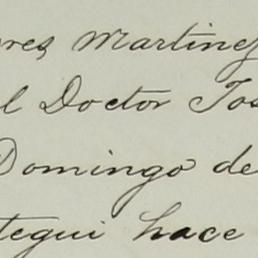 res Martinez
l Doctor Jos
Domingo de
tegui hace